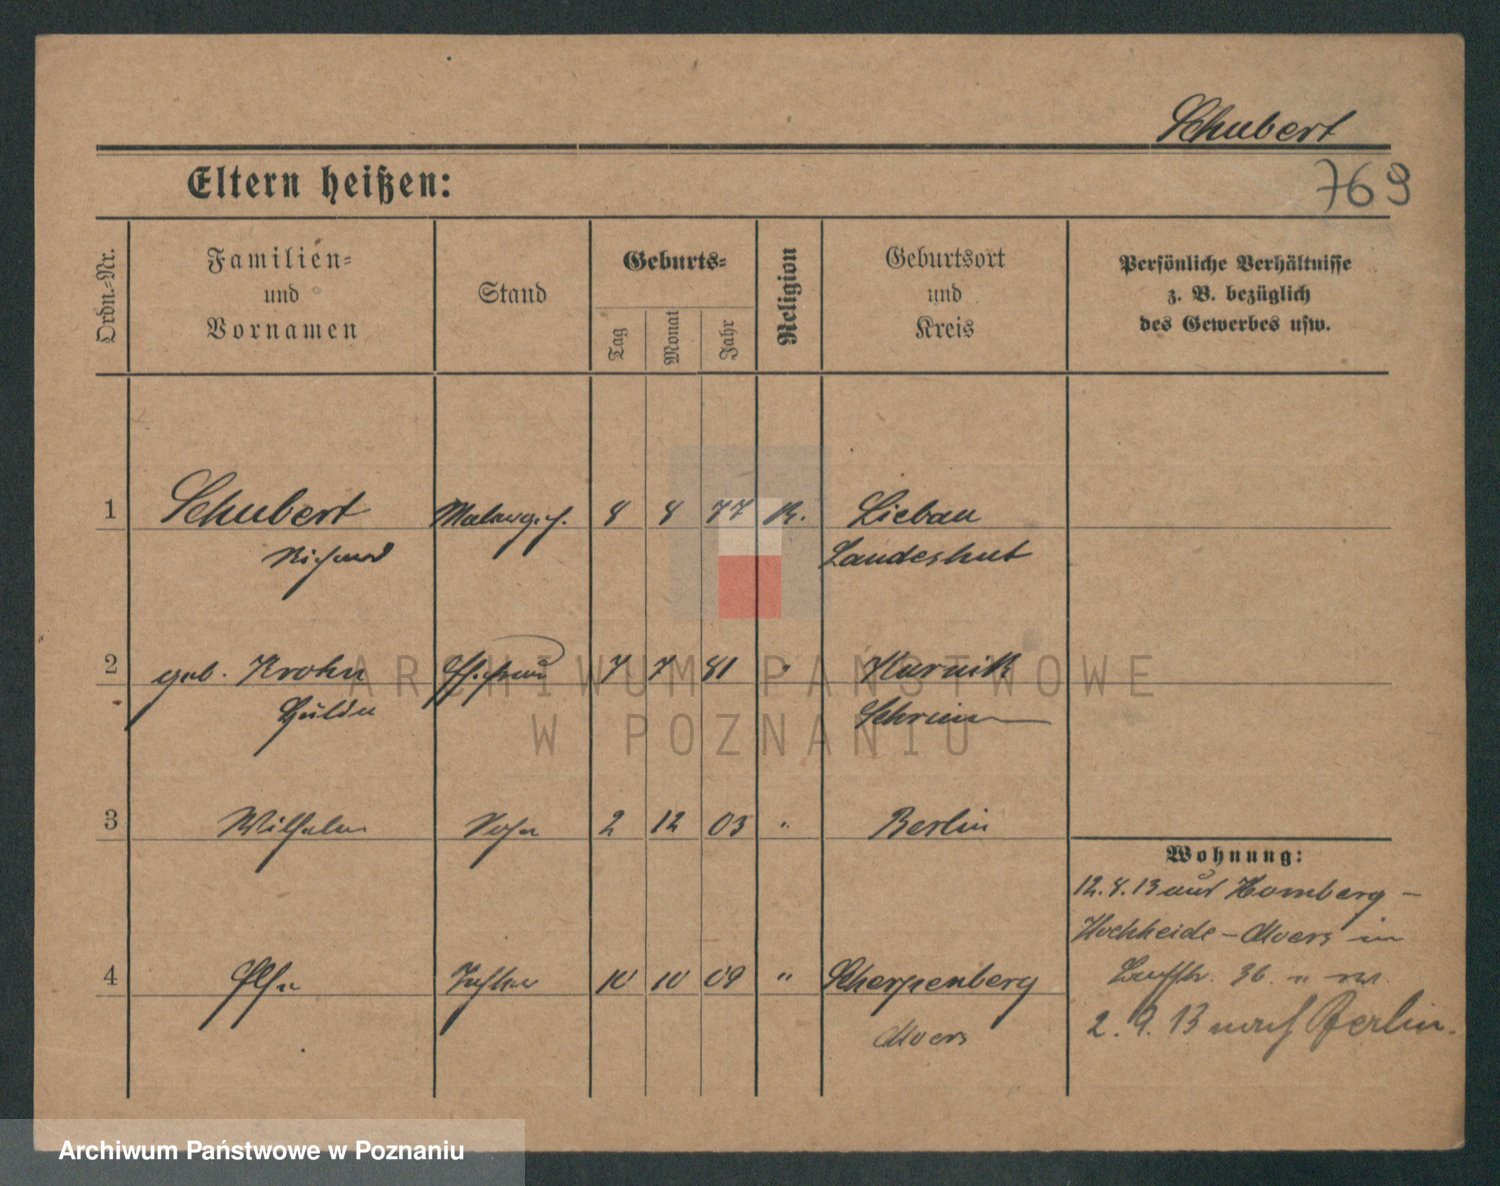 Schubert
769
Eltern heißen:
Ordn.-Nr.
Familien-
und
Vornamen
Stand
Geburts-
Tag
Monat
Jahr
Religion
Geburtsort
und
Kreis
Persönliche Verhältnisse
z. B. bezüglich
des Gewerbes usw.
1 Schubert Malergeh. 8 8 77 K. Liebau
Richard Landeshut
2 geb. Krohn Ehefrau 7 7 81 " Kurnik
Hulda Schrimm
3 Wilhelm Sohn 2 12 03 " Berlin
Wohnung:
12.8.13 aus Homberg-
Hochheide-Moers in
36.
4 Else Tochter 10 10 09 " Scherpenberg
Moers
2.9.13 nach Berlin.
ARCHIWUM PAŃSTWOWE
W POZNANIU
Archiwum Państwowe w Poznaniu